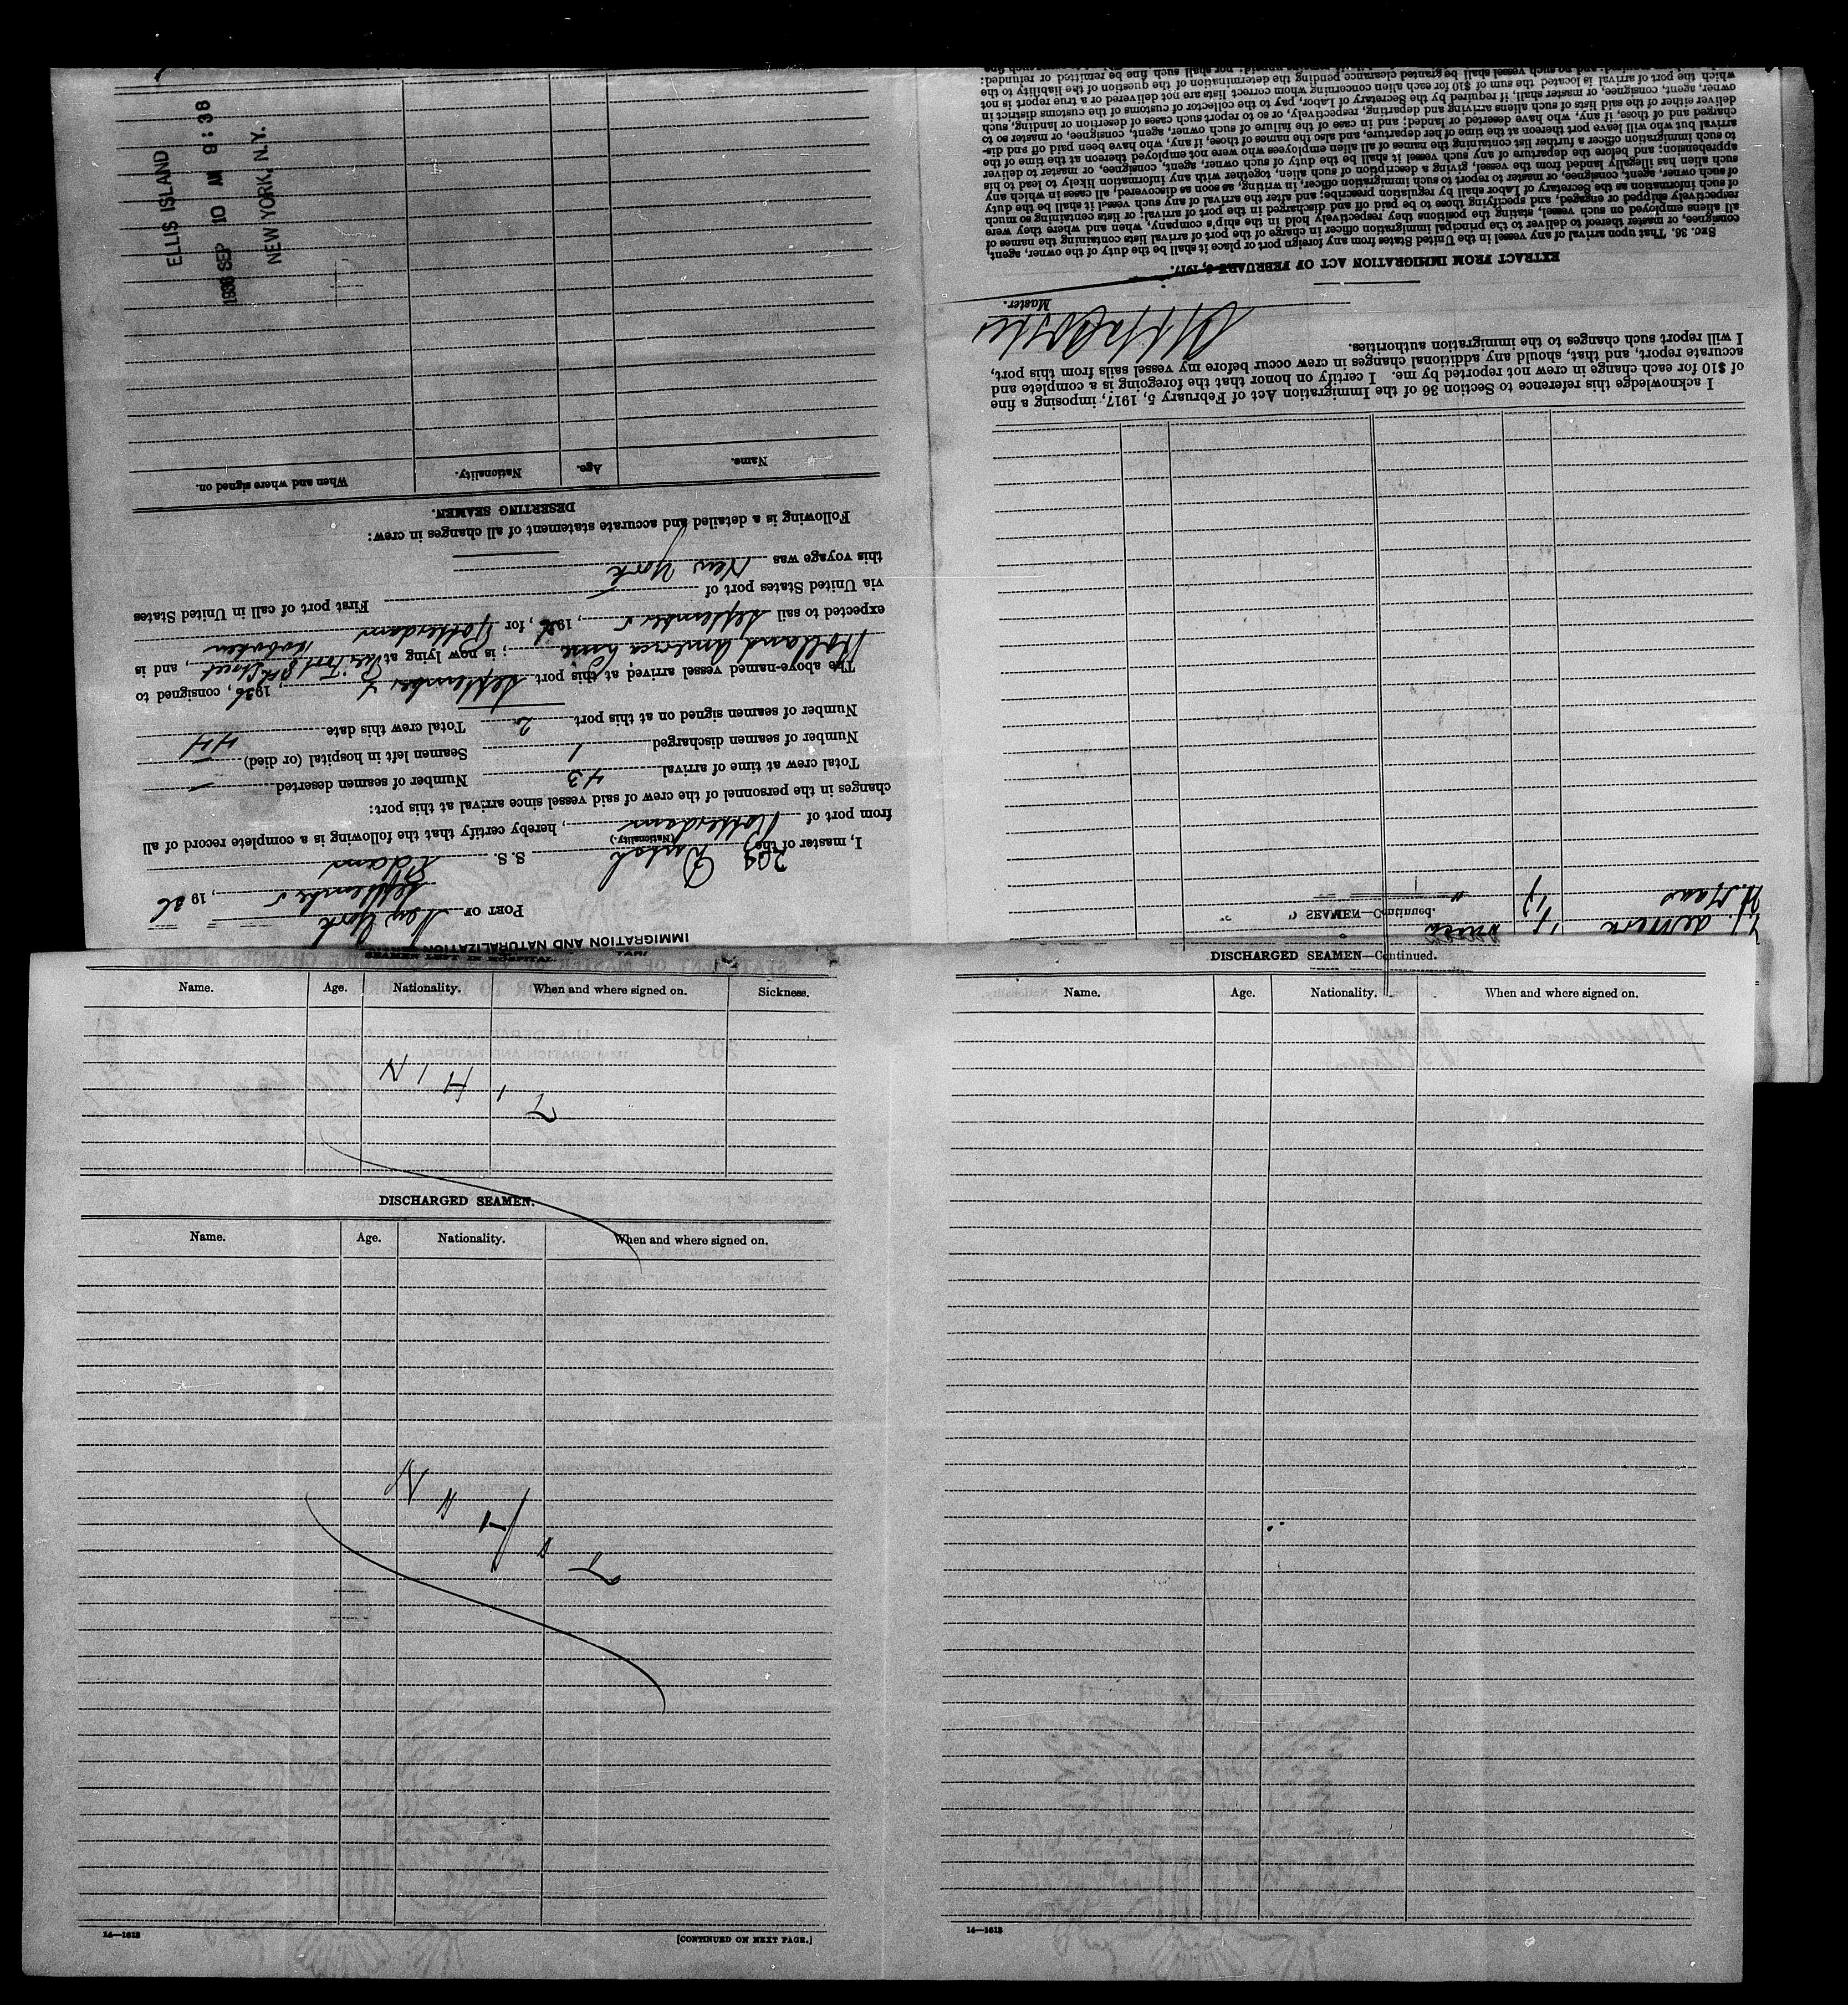 IMMIGRATION AND NATURALIZATION
PORT OF New York
September 5, 1936
I, master of the Dutch S. S. Edam
(Nationality.)
from port of Rotterdam, hereby certify that the following is a complete record of all
changes in the personnel of the crew of said vessel since arrival at this port:
Total crew at time of arrival 43 Number of seamen deserted —
Number of seamen discharged 1 Seamen left in hospital (or died) —
Number of seamen signed on at this port 2 Total crew this date 44
The above-named vessel arrived at this port September 4, 1936, consigned to
Holland America Line; is now lying at Pier Foot 8th Street Hoboken, and is
expected to sail September 5, 1936, for Rotterdam
via United States port of — First port of call in United States
this voyage was New York
Following is a detailed and accurate statement of all changes in crew:
DESERTING SEAMEN.
Name. Age. Nationality. When and where signed on.
ELLIS ISLAND
1936 SEP 10 AM 9:38
NEW YORK, N.Y.
SEAMEN—Continued.
I acknowledge this reference to Section 36 of the Immigration Act of February 5, 1917, imposing a fine
of $10 for each change in crew not reported by me. I certify on honor that the foregoing is a complete and
accurate report, and that, should any additional changes in crew occur before my vessel sails from this port,
I will report such changes to the immigration authorities.
Master.
EXTRACT FROM IMMIGRATION ACT OF FEBRUARY 5, 1917.
SEC. 36. That upon arrival of any vessel in the United States from any foreign port or place it shall be the duty of the owner, agent,
consignee, or master thereof to deliver to the principal immigration officer in charge of the port of arrival lists containing the names of
all aliens employed on such vessel, stating the positions they respectively hold in the ship's company, when and where they were
respectively shipped or engaged, and specifying those to be paid off and discharged in the port of arrival; or lists containing so much
of such information as the Secretary of Labor shall by regulation prescribe; and after the arrival of any such vessel it shall be the duty
of such owner, agent, consignee, or master to report to such immigration officer, in writing, as soon as discovered, all cases in which any
such alien has illegally landed from the vessel, giving a description of such alien, together with any information likely to lead to his
apprehension; and before the departure of any such vessel it shall be the duty of such owner, agent, consignee, or master to deliver
to such immigration officer a further list containing the names of all alien employees who were not employed thereon at the time of the
arrival but who will leave port thereon at the time of her departure, and also the names of those, if any, who have been paid off and dis-
charged and of those, if any, who have deserted or landed; and in case of the failure of such owner, agent, consignee, or master so to
deliver either of the said lists of such aliens arriving and departing, respectively, or so to report such cases of desertion or landing, such
owner, agent, consignee, or master shall, if required by the Secretary of Labor, pay to the collector of customs of the customs district in
which the port of arrival is located the sum of $10 for each alien concerning whom correct lists are not delivered or a true report is not
SEAMEN LEFT IN HOSPITAL.
Name. Age. Nationality. When and where signed on. Sickness.
DISCHARGED SEAMEN.
Name. Age. Nationality. When and where signed on.
14—1613
[CONTINUED ON NEXT PAGE.]
DISCHARGED SEAMEN—Continued.
Name. Age. Nationality. When and where signed on.
14—1613